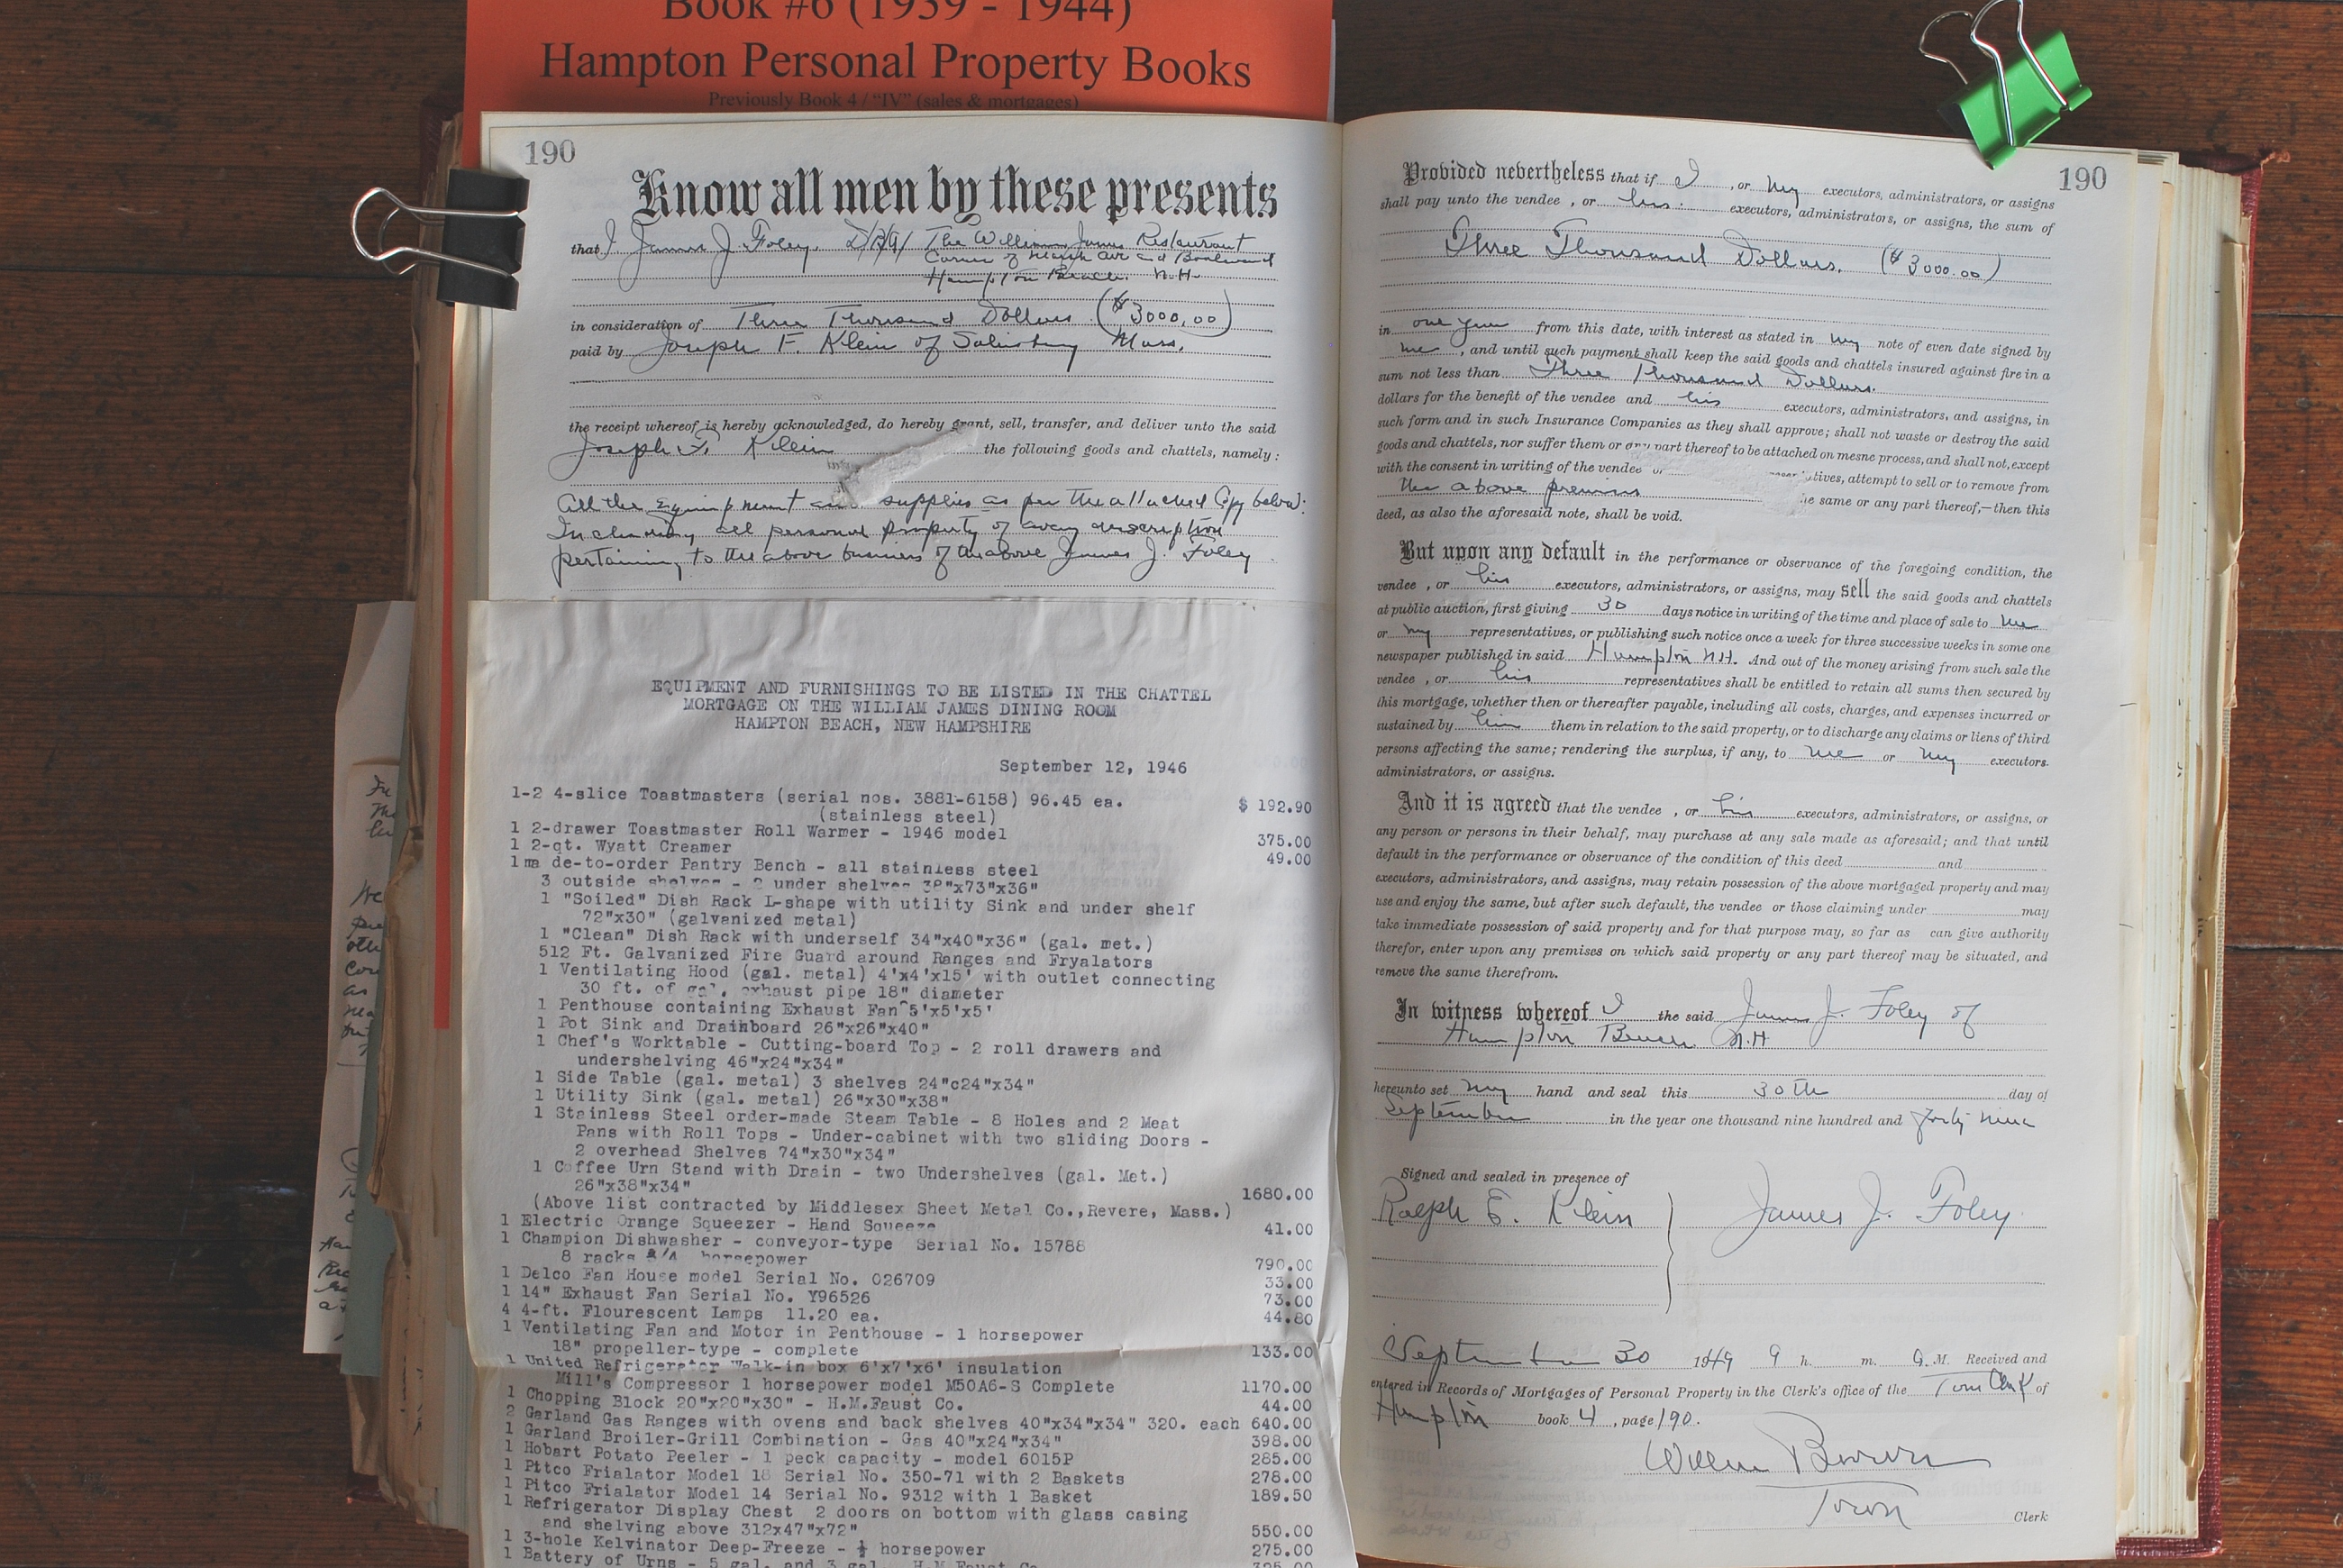 Book #6 (1939 - 1944)
Hampton Personal Property Books
Previously Book 4 / “IV” (sales & mortgages)
190
Know all men by these presents
that I James J. Foley. D/B/A/ The William James Restaurant
Corner of Marsh Ave and Boulevard
Hampton Beach. N.H.
in consideration of Three Thousand Dollars ($3000.00)
paid by Joseph F. Klein of Salisbury Mass.
the receipt whereof is hereby acknowledged, do hereby grant, sell, transfer, and deliver unto the said
Joseph F. Klein the following goods and chattels, namely:
All the Equipment and supplies as per the attached Copy below:
Including all personal property of every description
pertaining to the above business of the above James J. Foley
EQUIPMENT AND FURNISHINGS TO BE LISTED IN THE CHATTEL
MORTGAGE ON THE WILLIAM JAMES DINING ROOM
HAMPTON BEACH, NEW HAMPSHIRE
September 12, 1946
1-2 4-slice Toastmasters (serial nos. 3881-6158) 96.45 ea. $ 192.90
(stainless steel)
1 2-drawer Toastmaster Roll Warmer - 1946 model 375.00
1 2-qt. Wyatt Creamer 49.00
1 ma de-to-order Pantry Bench - all stainless steel
3 outside shelves - 2 under shelves 38"x73"x36"
1 "Soiled" Dish Rack L-shape with utility Sink and under shelf
72"x30" (galvanized metal)
1 "Clean" Dish Rack with underself 34"x40"x36" (gal. met.)
512 Ft. Galvanized Fire Guard around Ranges and Fryalators
1 Ventilating Hood (gal. metal) 4'x4'x15' with outlet connecting
30 ft. of gal. exhaust pipe 18" diameter
1 Penthouse containing Exhaust Fan 5'x5'x5'
1 Pot Sink and Drainboard 26"x26"x40"
1 Chef's Worktable - Cutting-board Top - 2 roll drawers and
undershelving 46"x24"x34"
1 Side Table (gal. metal) 3 shelves 24"c24"x34"
1 Utility Sink (gal. metal) 26"x30"x38"
1 Stainless Steel order-made Steam Table - 8 Holes and 2 Meat
Pans with Roll Tops - Under-cabinet with two sliding Doors -
2 overhead Shelves 74"x30"x34"
1 Coffee Urn Stand with Drain - two Undershelves (gal. Met.)
26"x38"x34" 1680.00
(Above list contracted by Middlesex Sheet Metal Co.,Revere, Mass.)
1 Electric Orange Squeezer - Hand Squeeze 41.00
1 Champion Dishwasher - conveyor-type Serial No. 15788
8 racks horsepower 790.00
1 Delco Fan House model Serial No. 026709 33.00
1 14" Exhaust Fan Serial No. Y96526 73.00
4 4-ft. Flourescent Lamps 11.20 ea. 44.80
1 Ventilating Fan and Motor in Penthouse - 1 horsepower
18" propeller-type - complete 133.00
1 United Refrigerator Walk-in box 6'x7'x6' insulation
Mill's Compressor 1 horsepower model M50A6-S Complete 1170.00
1 Chopping Block 20"x20"x30" - H.M.Faust Co. 44.00
2 Garland Gas Ranges with ovens and back shelves 40"x34"x34" 320. each 640.00
1 Garland Broiler-Grill Combination - Gas 40"x24"x34" 398.00
1 Hobart Potato Peeler - 1 peck capacity - model 6015P 285.00
1 Pitco Frialator Model 18 Serial No. 350-71 with 2 Baskets 278.00
1 Pitco Frialator Model 14 Serial No. 9312 with 1 Basket 189.50
1 Refrigerator Display Chest 2 doors on bottom with glass casing
and shelving above 312x47"x72" 550.00
1 3-hole Kelvinator Deep-Freeze - ½ horsepower 275.00
1 Battery of Urns - 5 gal. and 3 gal. H.M.Faust Co.
190
Provided nevertheless that if I, or my executors, administrators, or assigns
shall pay unto the vendee , or his executors, administrators, or assigns, the sum of
Three Thousand Dollars. ($3000.00)
in one year from this date, with interest as stated in my note of even date signed by
me , and until such payment shall keep the said goods and chattels insured against fire in a
sum not less than Three Thousand Dollars.
dollars for the benefit of the vendee and his executors, administrators, and assigns, in
such form and in such Insurance Companies as they shall approve; shall not waste or destroy the said
goods and chattels, nor suffer them or any part thereof to be attached on mesne process, and shall not, except
with the consent in writing of the vendee or tatives, attempt to sell or to remove from
the above premises the same or any part thereof,—then this
deed, as also the aforesaid note, shall be void.
But upon any default in the performance or observance of the foregoing condition, the
vendee , or his executors, administrators, or assigns, may sell the said goods and chattels
at public auction, first giving 30 days notice in writing of the time and place of sale to me
or my representatives, or publishing such notice once a week for three successive weeks in some one
newspaper published in said Hampton N.H. And out of the money arising from such sale the
vendee , or his representatives shall be entitled to retain all sums then secured by
this mortgage, whether then or thereafter payable, including all costs, charges, and expenses incurred or
sustained by him them in relation to the said property, or to discharge any claims or liens of third
persons affecting the same; rendering the surplus, if any, to me or my executors.
administrators, or assigns.
And it is agreed that the vendee , or his executors, administrators, or assigns, or
any person or persons in their behalf, may purchase at any sale made as aforesaid; and that until
default in the performance or observance of the condition of this deed and
executors, administrators, and assigns, may retain possession of the above mortgaged property and may
use and enjoy the same, but after such default, the vendee or those claiming under may
take immediate possession of said property and for that purpose may, so far as can give authority
therefor, enter upon any premises on which said property or any part thereof may be situated, and
remove the same therefrom.
In witness whereof I the said James J. Foley of
Hampton Beach N.H
hereunto set my hand and seal this 30th day of
September in the year one thousand nine hundred and forty nine
Signed and sealed in presence of
Ralph E. Klein James J. Foley
September 30 1949 9 h. m. A.M. Received and
entered in Records of Mortgages of Personal Property in the Clerk's office of the Town Clerk of
Hampton book 4, page 190.
Brown
Town Clerk